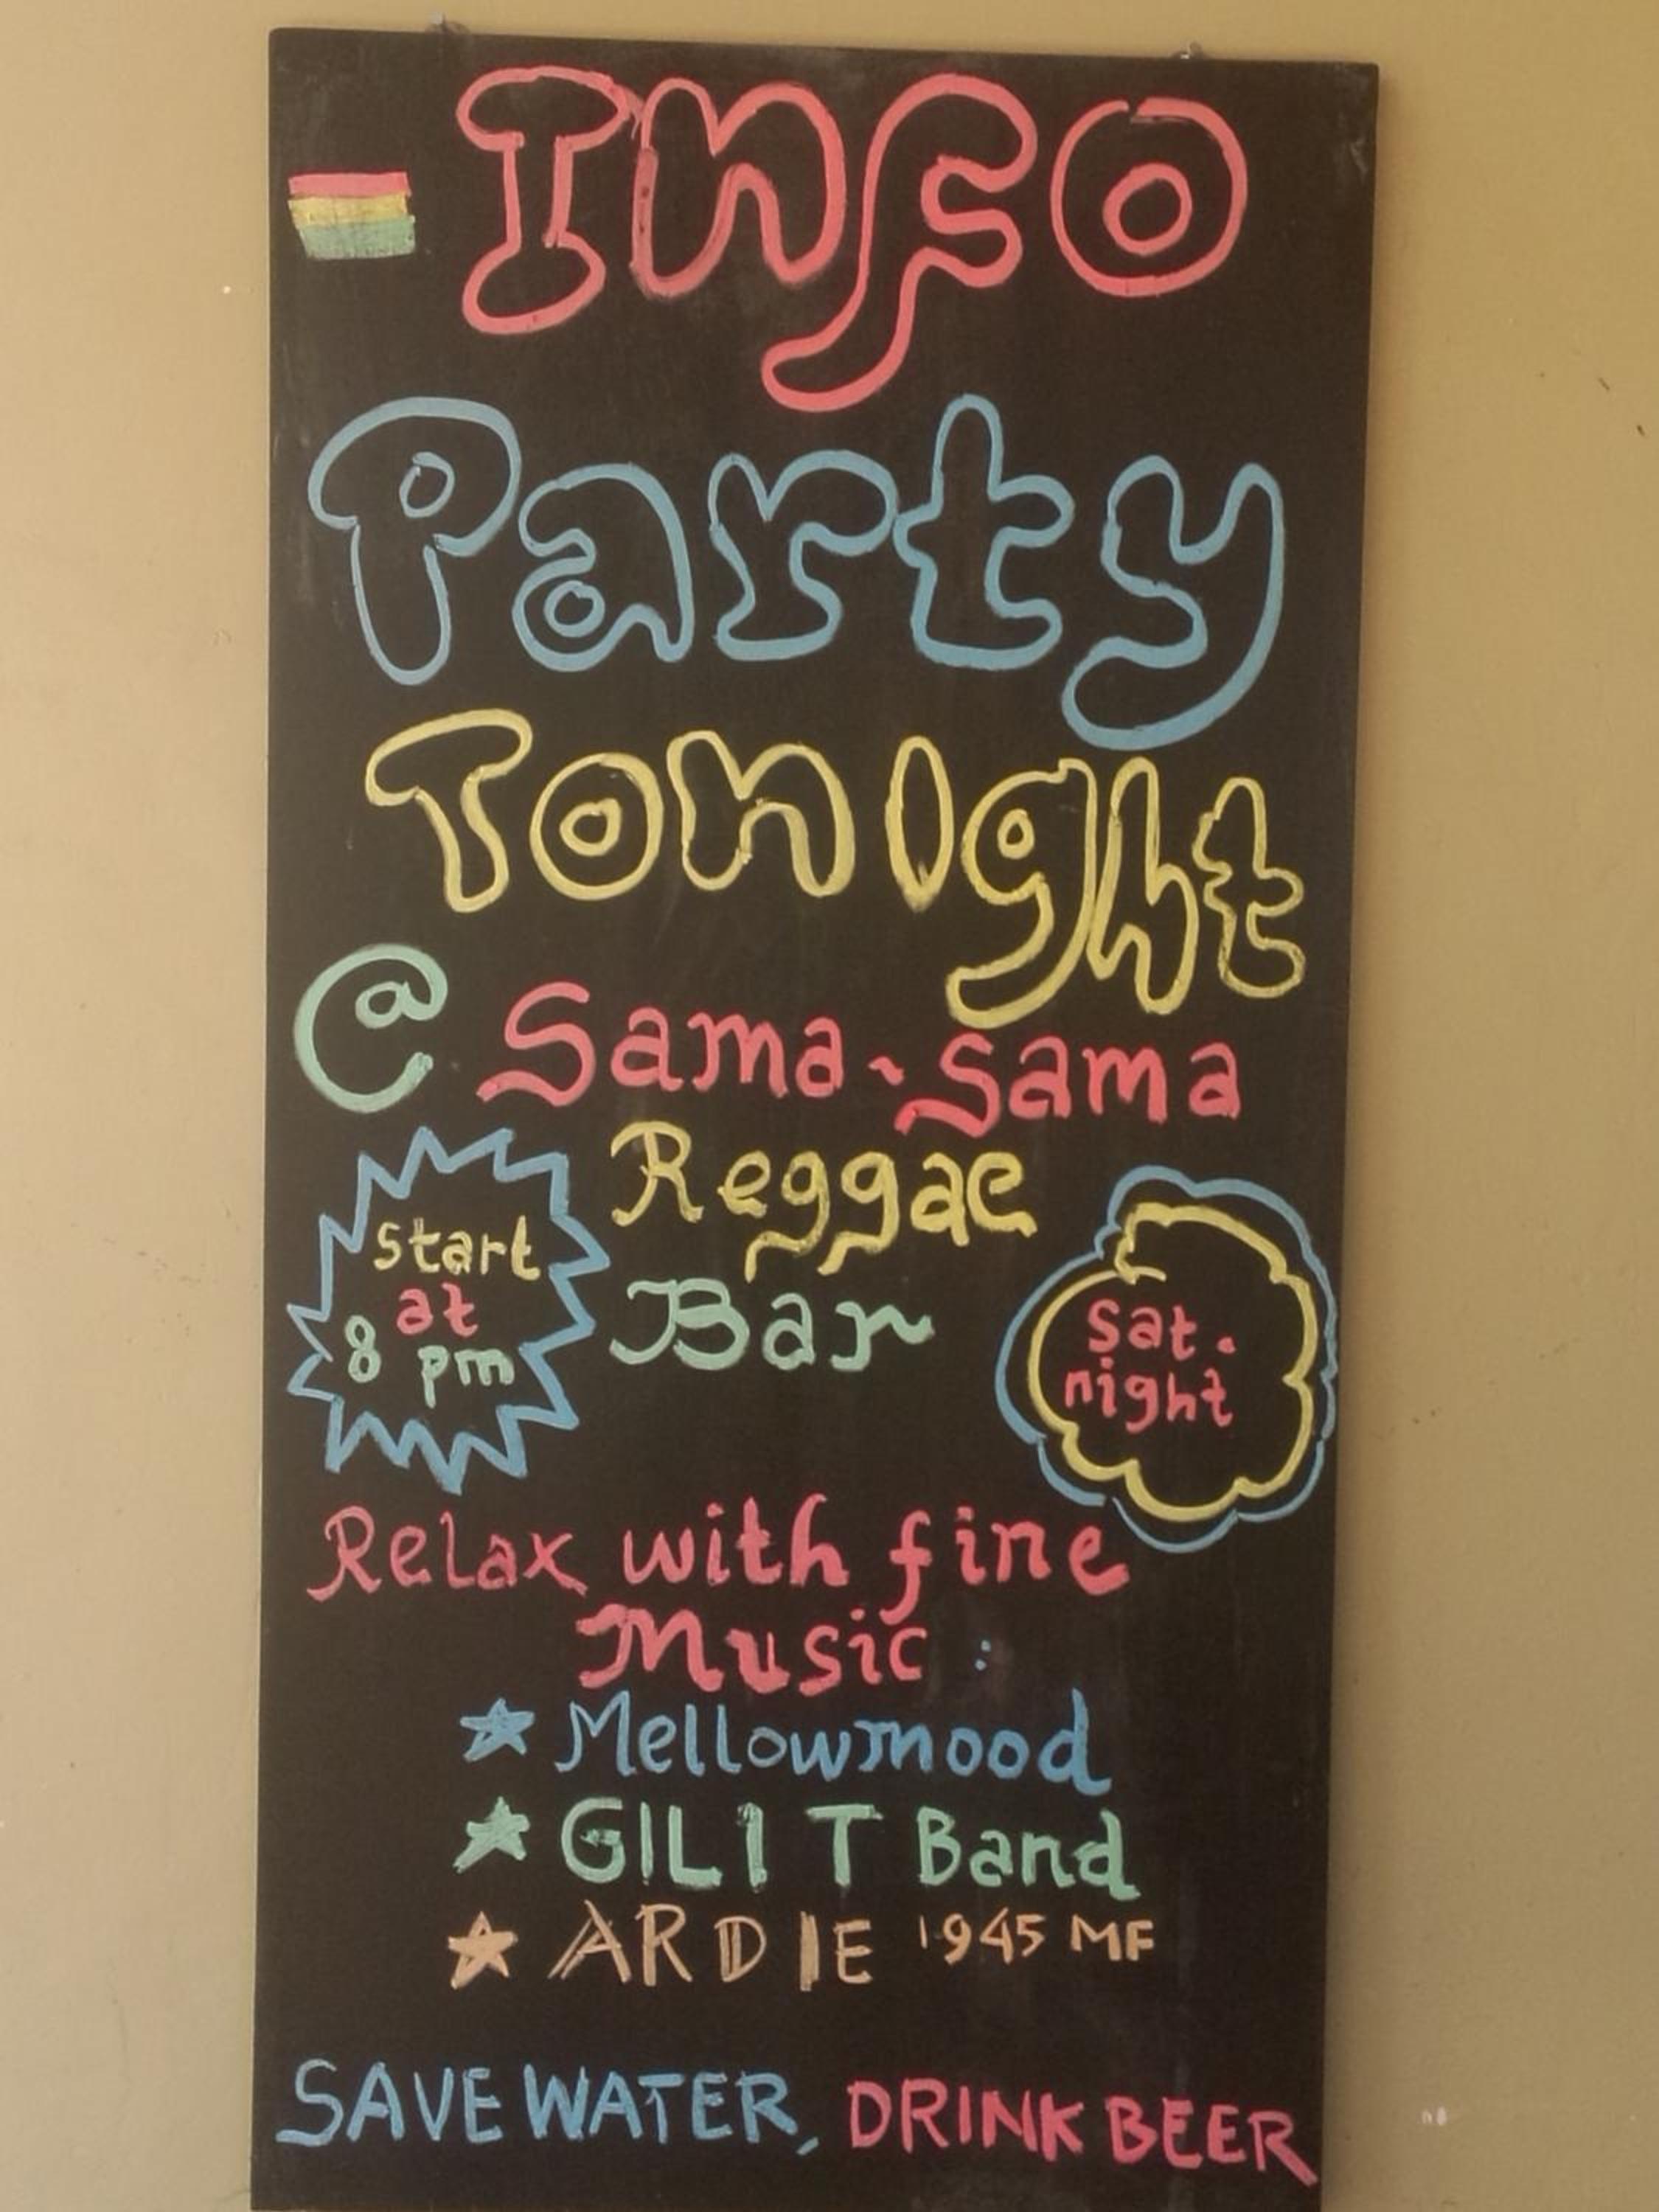 Info
Party
Tonight
@ Sama-Sama
Reggae
Bar
Start
at
8 pm
Sat.
night
Relax with fine
Music :
Mellowmood
GILI T Band
ARDIE 1945 MF
SAVE WATER, DRINK BEER